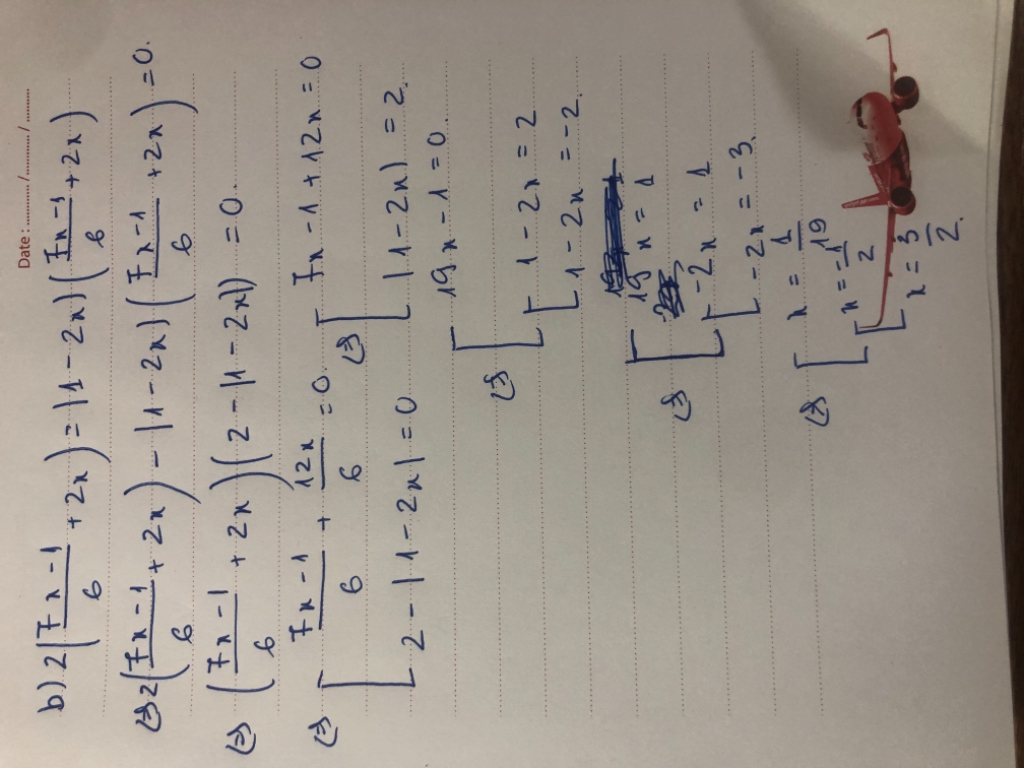 Date: ........../........../..........
b) 2(\frac{7x-1}{6} + 2x) = |1 - 2x|(\frac{7x-1}{6} + 2x)
(=) 2(\frac{7x-1}{6} + 2x) - |1 - 2x|(\frac{7x-1}{6} + 2x) = 0.
(=) (\frac{7x-1}{6} + 2x)(2 - |1 - 2x|) = 0.
(=) [ \frac{7x-1}{6} + \frac{12x}{6} = 0. 7x - 1 + 12x = 0
2 - |1 - 2x| = 0 (=) [ |1 - 2x| = 2.
19x - 1 = 0.
(=) [ [ 1 - 2x = 2
1 - 2x = -2.
(=) [ 19x = 1
[ -2x = 1
-2x = -3.
(=) [ x = \frac{1}{19}
[ x = \frac{-1}{2}
x = \frac{3}{2}.